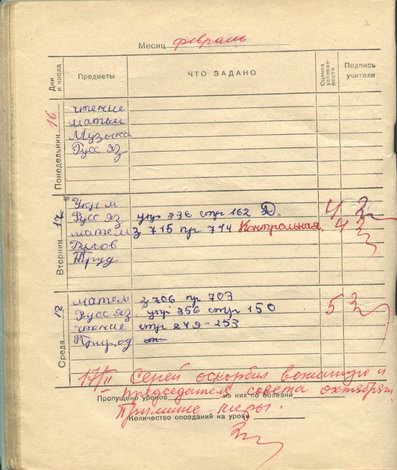 Месяц февраль
Дни и числа Предметы ЧТО ЗАДАНО Оценка успевае- мости Подпись учителя
Понедельник 16
чтение
матем
Музыка
Русс яз
Вторник 17
Укр м
Русс яз упр 336 стр 162 Д. 4
матем з 715 пр 714 Контрольная 4
Труд
Среда 18
матем з 706 пр 703 5
Русс яз упр 356 стр 150
чтение стр 249-253
Природ
17/II Сергей оскорбил вожатую и
председателя совета октябрят
Пропущено уроков из них по болезни
Примите меры.
Количество опозданий на уроки